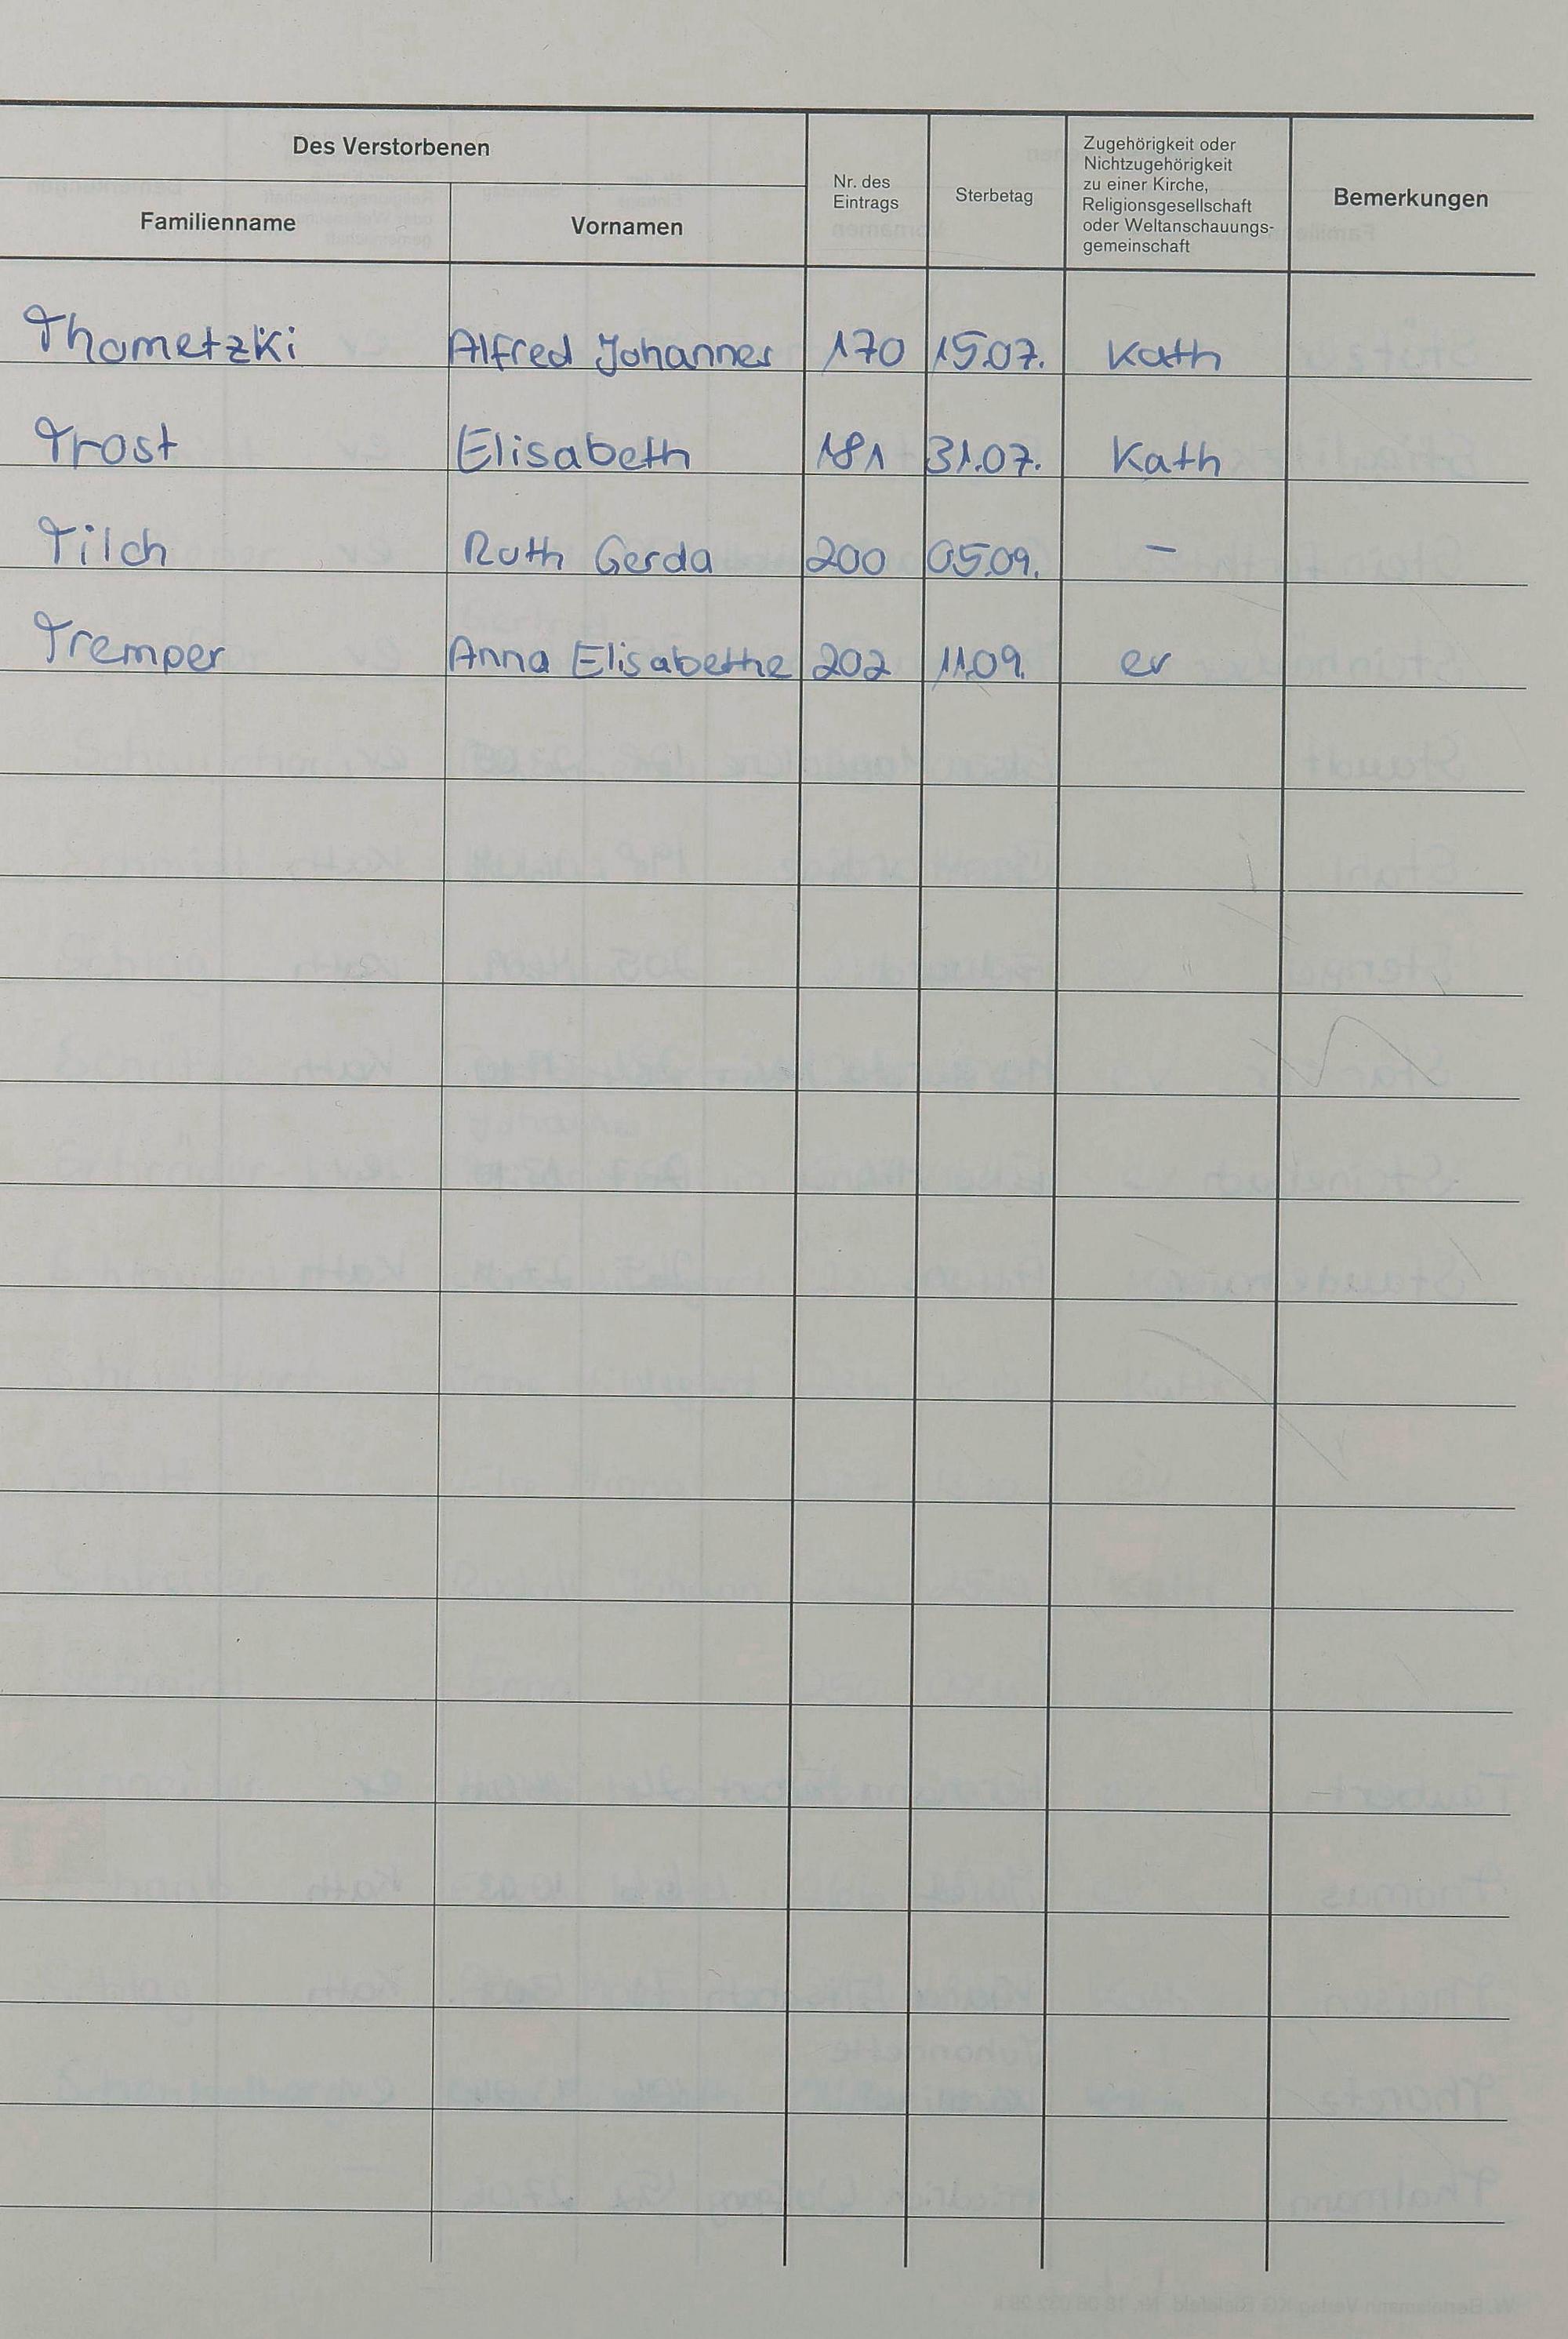 Des Verstorbenen
Familienname Vornamen Nr. des Eintrags Sterbetag Zugehörigkeit oder Nichtzugehörigkeit zu einer Kirche, Religionsgesellschaft oder Weltanschauungs-gemeinschaft Bemerkungen
Thometzki Alfred Johannes 170 15.07. Kath
Trost Elisabeth 181 31.07. Kath
Tilch Ruth Gerda 200 05.09. –
Tremper Anna Elisabethe 202 11.09. ev